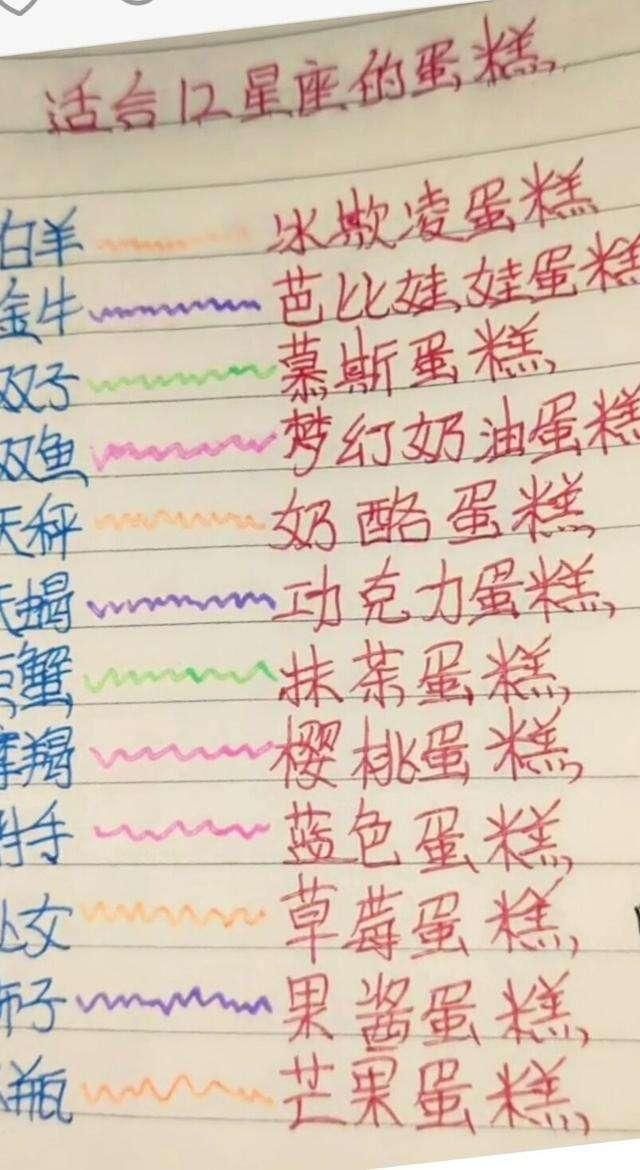 适合12星座的蛋糕
白羊 冰欺凌蛋糕
金牛 芭比娃娃蛋糕
双子 慕斯蛋糕
双鱼 梦幻奶油蛋糕
天秤 奶酪蛋糕
天蝎 功克力蛋糕
巨蟹 抹茶蛋糕
摩羯 樱桃蛋糕
射手 蓝色蛋糕
处女 草莓蛋糕
狮子 果酱蛋糕
水瓶 芒果蛋糕